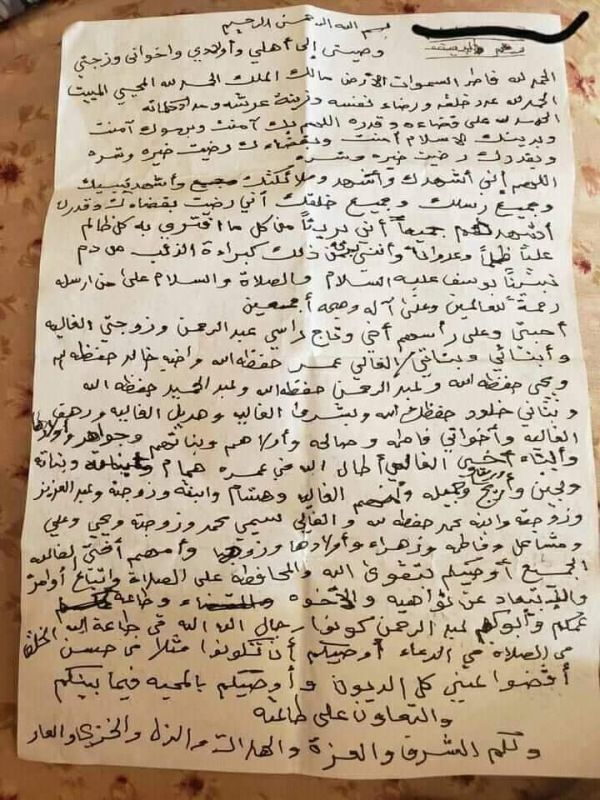 بسم الله الرحمن الرحيم
وصيتي إلى أهلي وأولادي واخواني وزوجتي
الحمد لله فاطر السموات الأرض مالك الملك الحمد لله المحيي المميت
الحمد لله عدد خلقه ورضاء نفسه وزينة عرشه ومداد كلماته
الحمد لله على قضاءه وقدره اللهم بك آمنت وبرسولك آمنت
وبدينك الاسلام آمنت وبقضاءك رضيت خيره وشره
وبقدرك رضيت خيره وشره
اللهم إني أشهدك وأشهد وملائكتك وأشهد نبيك
وجميع رسلك وجميع خلقك أني رضيت بقضاءك وقدرك
أشهدكم جميعاً أني بريئاً من كل ما افترى به كل ظالم
علينا ظلماً وعدواناً وأنني برئ من ذلك كبراءة الذئب من دم
نبينا يوسف عليه السلام والصلاة والسلام على من ارسله
رحمة للعالمين وعلى آله وصحبه أجمعين
أحبتي وعلى رأسهم أخي وتاج راسي عبدالرحمن وزوجتي الغاليه
وأبنائي وبناتي/ الغالي عمر حفظه الله واخيه خالد حفظه الله
ويحيى حفظه الله وعبدالرحمن حفظه الله وعبدالحميد حفظه الله
وبناتي خلود حفظك الله وبشرى الغاليه وهديل الغاليه ورهف
الغاليه وأخواتي فاطمه وصالحه وأولاهم وبناتهم وجواهر وأولادها
وأبناء أخي الغالي أطال الله في عمره همام وبناته
ولجين وأريج وجميله الغاليه وهشام وابنه وزوجته وعبدالعزيز
وزوجته وابنه محمد حفظه الله والغالي سميي محمد وزوجته ويحيى وعلي
ومشاعل وفاطمه وزهراء وأولادها وزوجها وأمهم أختي الغاليه
الجميع أوصيكم بتقوى الله والمحافظه على الصلاة واتباع أوامره
والابتعاد عن نواهيه والأخوه وطاعة
عمكم وأبوكم عبدالرحمن كونوا رجال الله الله في طاعة الله
في الصلاة في الدعاء أوصيكم أن تكونوا مثلا في حسن الخلق
أقضوا عني كل الديون وأوصيكم بالمحبه فيما بينكم
والتعاون على طاعته
ولكم الشرف والعزة والهلاك والذل والخزي والعار